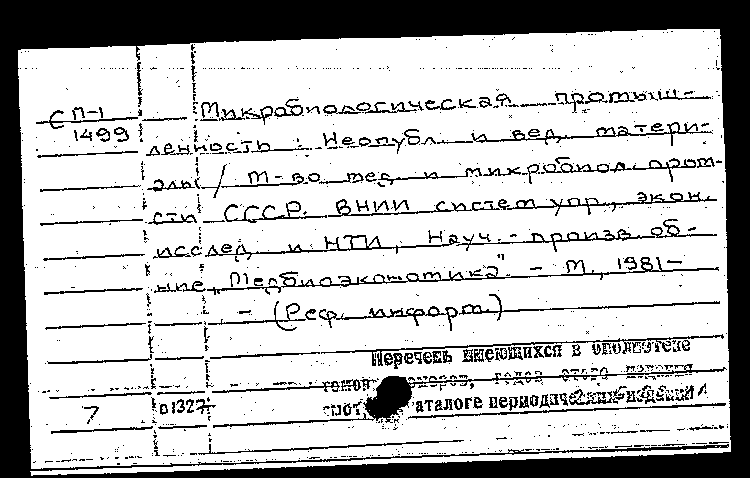 С П-1
1499
Микробиологическая промыш-
ленность : Неопубл. и вед. матери-
алы / М-во мед. и микробиол. пром-
сти СССР. ВНИИ систем упр., экон.
исслед. и НТИ, Науч.-произв. об-
ние „Медбиоэкономика". - М., 1981-
- (Реф. информ.)
Перечень имеющихся в библиотеке
томов номеров, годов этого издания
смот аталоге периодических изданий
7